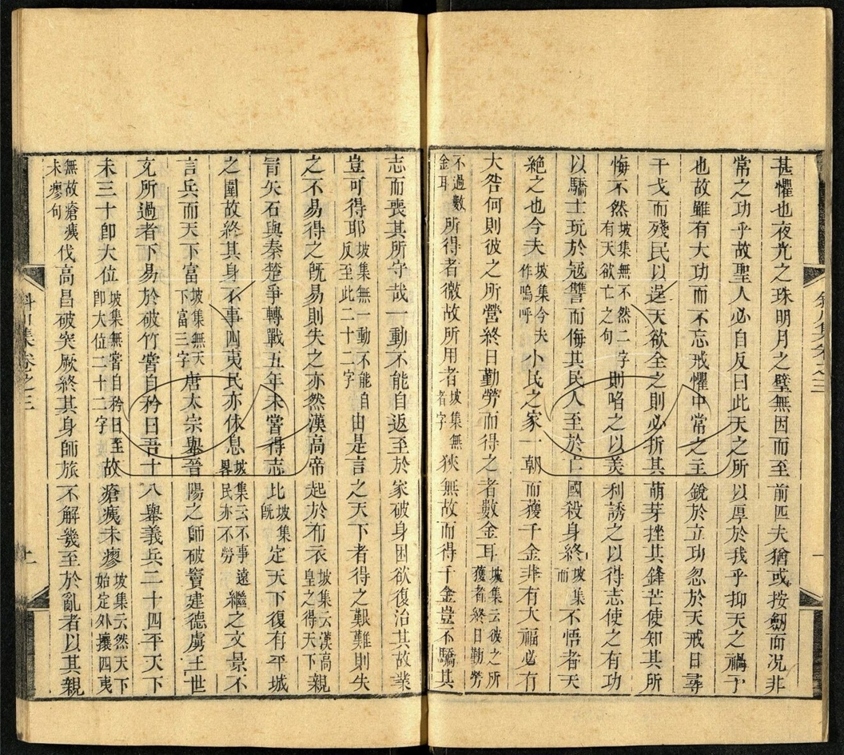 甚懼也夜光之珠明月之璧無因而至前匹夫猶或按劒而況非
常之功乎故聖人必自反曰此天之所以厚於我乎抑天之禍予
也故雖有大功而不忘戒懼中常之主銳於立功忽於天戒日尋
干戈而殘民以逞天欲全之則必折其萌芽挫其鋒芒使知其所
悔不然坡集無不然二字有天欲亡之句則啗之以美利誘之以得志使之有功
以驕士玩於寇讐而侮其民人至於亡國殺身終坡集而不悟者天
絕之也今夫坡集今夫作嗚呼小民之家一朝而獲千金非有大福必有
大咎何則彼之所營終日勤勞而得之者數金耳坡集云彼之所獲者終日勤勞
不過數金耳所得者微故所用者坡集無者字狹無故而得千金豈不驕其
志而喪其所守哉一動不能自返至於家破身困欲復治其故業
豈可得耶坡集無一動不能自反至此二十二字由是言之天下者得之艱難則失
之不易得之旣易則失之亦然漢高帝起於布衣坡集云漢高皇之得天下親
冐矢石與秦楚爭轉戰五年未嘗得志比坡集旣定天下復有平城
之圍故終其身不事四夷民亦休息坡集云不事遠畧民亦不勞繼之文景不
言兵而天下富坡集無天下富三字唐太宗舉晉陽之師破竇建德虜王世
充所過者下易於破竹嘗自矜曰吾十八舉義兵二十四平天下
未三十卽大位坡集無嘗自矜曰至卽大位二十二字故瘡痍未瘳坡集云然天下始定外攘四夷
無故瘡痍未瘳句伐高昌破突厥終其身師旅不解幾至於亂者以其親
斜川集卷之三